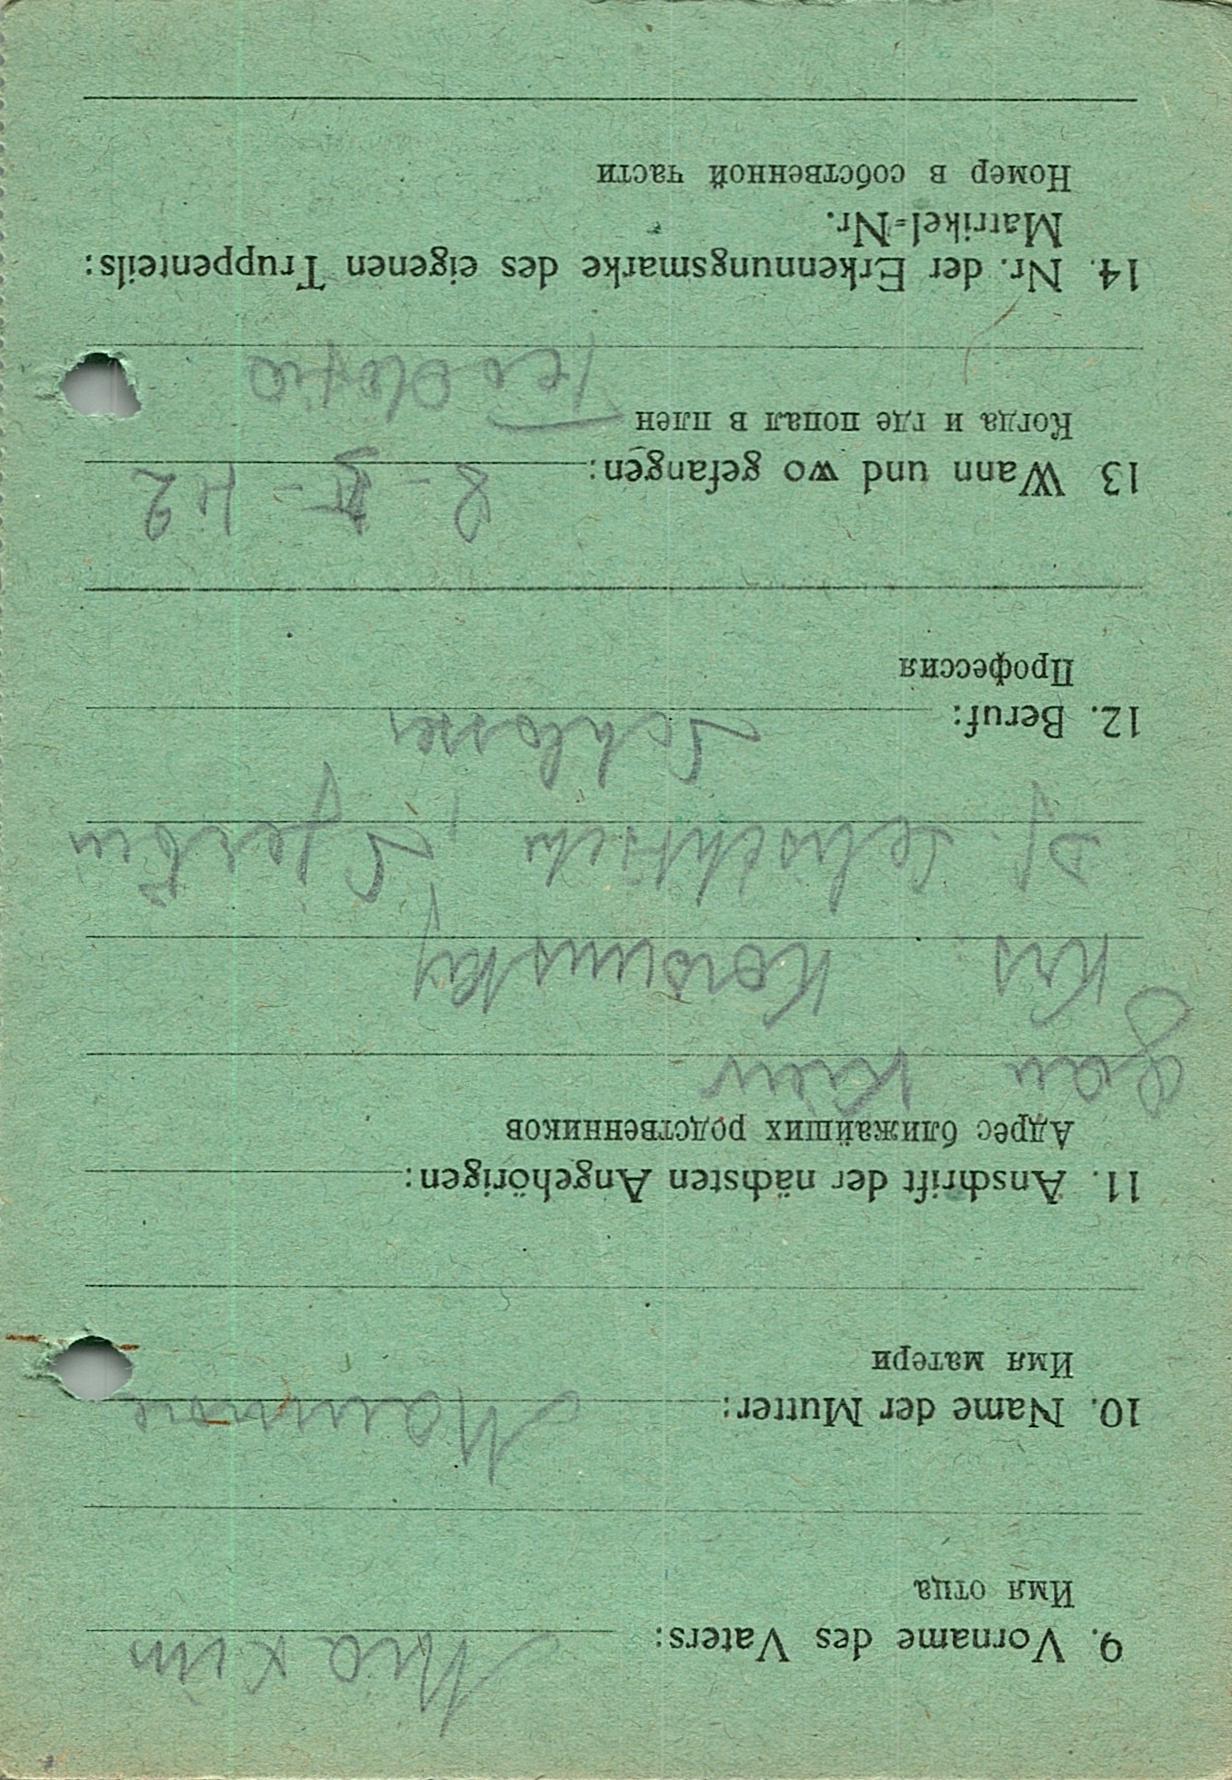 9. Vorname des Vaters: Maxim
Имя отца
10. Name der Mutter:
Имя матери
11. Anschrift der nächsten Angehörigen:
Адрес ближайших родственников
Gau Kiew
Krs. Korsunsky
Df.
12. Beruf: Schlosser
Профессия
13 Wann und wo gefangen:
Когда и где попал в плен
Feodosia
14. Nr. der Erkennungsmarke des eigenen Truppenteils:
Matrikel-Nr.
Номер в собственной части